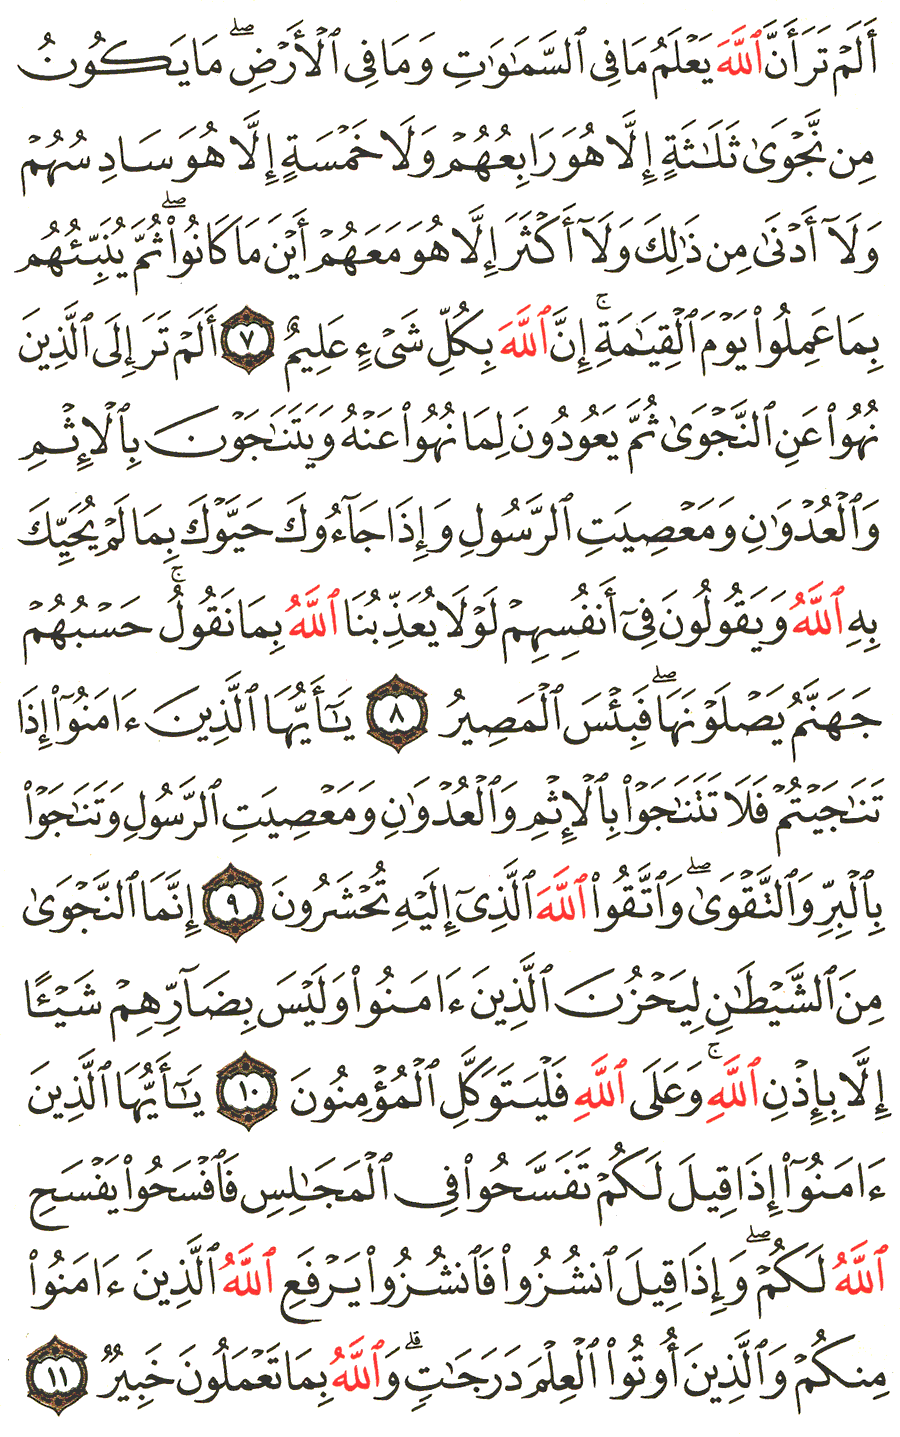 أَلَمْ تَرَ أَنَّ ٱللَّهَ يَعْلَمُ مَا فِى ٱلسَّمَـٰوَٰتِ وَمَا فِى ٱلْأَرْضِ ۖ مَا يَكُونُ
مِن نَّجْوَىٰ ثَلَـٰثَةٍ إِلَّا هُوَ رَابِعُهُمْ وَلَا خَمْسَةٍ إِلَّا هُوَ سَادِسُهُمْ
وَلَآ أَدْنَىٰ مِن ذَٰلِكَ وَلَآ أَكْثَرَ إِلَّا هُوَ مَعَهُمْ أَيْنَ مَا كَانُوا۟ ۖ ثُمَّ يُنَبِّئُهُم
بِمَا عَمِلُوا۟ يَوْمَ ٱلْقِيَـٰمَةِ ۚ إِنَّ ٱللَّهَ بِكُلِّ شَىْءٍ عَلِيمٌ ٧ أَلَمْ تَرَ إِلَى ٱلَّذِينَ
نُهُوا۟ عَنِ ٱلنَّجْوَىٰ ثُمَّ يَعُودُونَ لِمَا نُهُوا۟ عَنْهُ وَيَتَنَـٰجَوْنَ بِٱلْإِثْمِ
وَٱلْعُدْوَٰنِ وَمَعْصِيَتِ ٱلرَّسُولِ وَإِذَا جَآءُوكَ حَيَّوْكَ بِمَا لَمْ يُحَيِّكَ
بِهِ ٱللَّهُ وَيَقُولُونَ فِىٓ أَنفُسِهِمْ لَوْلَا يُعَذِّبُنَا ٱللَّهُ بِمَا نَقُولُ ۚ حَسْبُهُمْ
جَهَنَّمُ يَصْلَوْنَهَا ۖ فَبِئْسَ ٱلْمَصِيرُ ٨ يَـٰٓأَيُّهَا ٱلَّذِينَ ءَامَنُوٓا۟ إِذَا
تَنَـٰجَيْتُمْ فَلَا تَتَنَـٰجَوْا۟ بِٱلْإِثْمِ وَٱلْعُدْوَٰنِ وَمَعْصِيَتِ ٱلرَّسُولِ وَتَنَـٰجَوْا۟
بِٱلْبِرِّ وَٱلتَّقْوَىٰ ۖ وَٱتَّقُوا۟ ٱللَّهَ ٱلَّذِىٓ إِلَيْهِ تُحْشَرُونَ ٩ إِنَّمَا ٱلنَّجْوَىٰ
مِنَ ٱلشَّيْطَـٰنِ لِيَحْزُنَ ٱلَّذِينَ ءَامَنُوا۟ وَلَيْسَ بِضَآرِّهِمْ شَيْـًٔا
إِلَّا بِإِذْنِ ٱللَّهِ ۚ وَعَلَى ٱللَّهِ فَلْيَتَوَكَّلِ ٱلْمُؤْمِنُونَ ١٠ يَـٰٓأَيُّهَا ٱلَّذِينَ
ءَامَنُوٓا۟ إِذَا قِيلَ لَكُمْ تَفَسَّحُوا۟ فِى ٱلْمَجَـٰلِسِ فَٱفْسَحُوا۟ يَفْسَحِ
ٱللَّهُ لَكُمْ ۖ وَإِذَا قِيلَ ٱنشُزُوا۟ فَٱنشُزُوا۟ يَرْفَعِ ٱللَّهُ ٱلَّذِينَ ءَامَنُوا۟
مِنكُمْ وَٱلَّذِينَ أُوتُوا۟ ٱلْعِلْمَ دَرَجَـٰتٍ ۗ وَٱللَّهُ بِمَا تَعْمَلُونَ خَبِيرٌ ١١